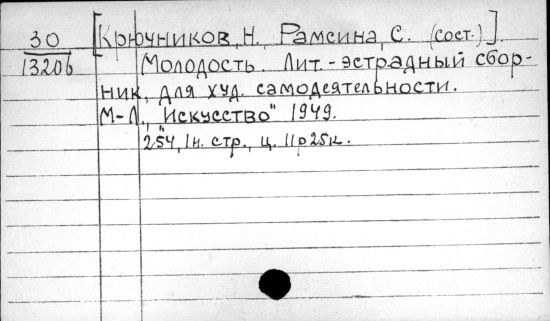 30 [Крючников, Н. Рамсина, С. (сост.)].
1320б Молодость. Лит.-эстрадный сбор-
ник, для худ. самодеятельности.
М-Л., "Искусство" 1949.
254, 1н. стр., ц. 11р25к.